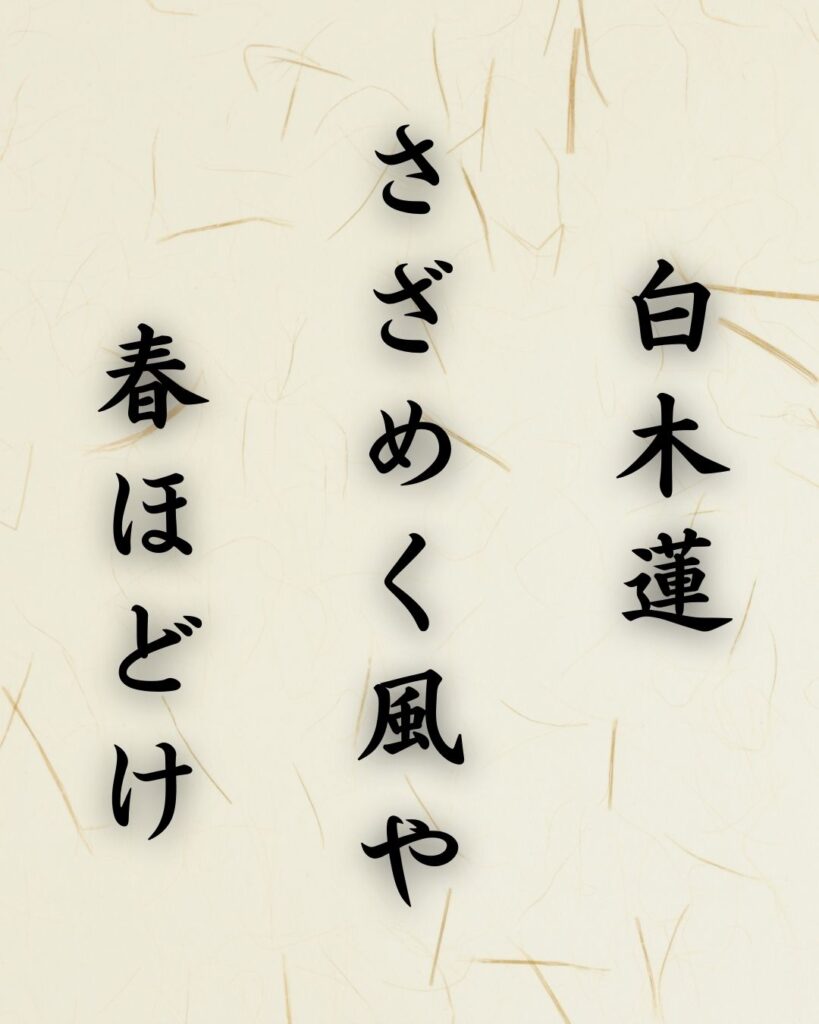 白木蓮
さざめく風や
春ほどけ